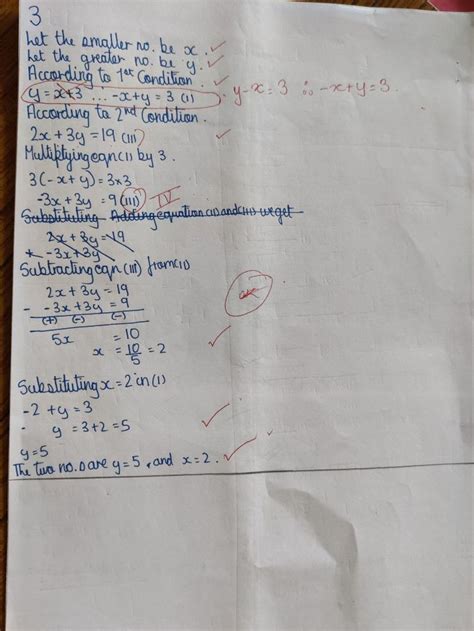 3
Let the smaller no. be x.
Let the greater no. be y.
According to 1st Condition.
y = x+3 ∴ -x+y = 3 (I) . y-x=3 ∴ -x+y=3.
According to 2nd Condition.
2x + 3y = 19 (II)
Multiplying eqn (I) by 3.
3(-x+y) = 3x3
-3x + 3y = 9 (III) IV
Substituting Adding equation (I) and (II) we get
2x + 3y = 19
+ -3x+3y
Subtracting eqn (III) from (II)
2x + 3y = 19
- -3x + 3y = 9
(+) (-) (-)
5x = 10
x = 10/5 = 2
Substituting x = 2 in (I)
-2 + y = 3
y = 3+2 = 5
y = 5
The two no.s are y = 5, and x = 2.